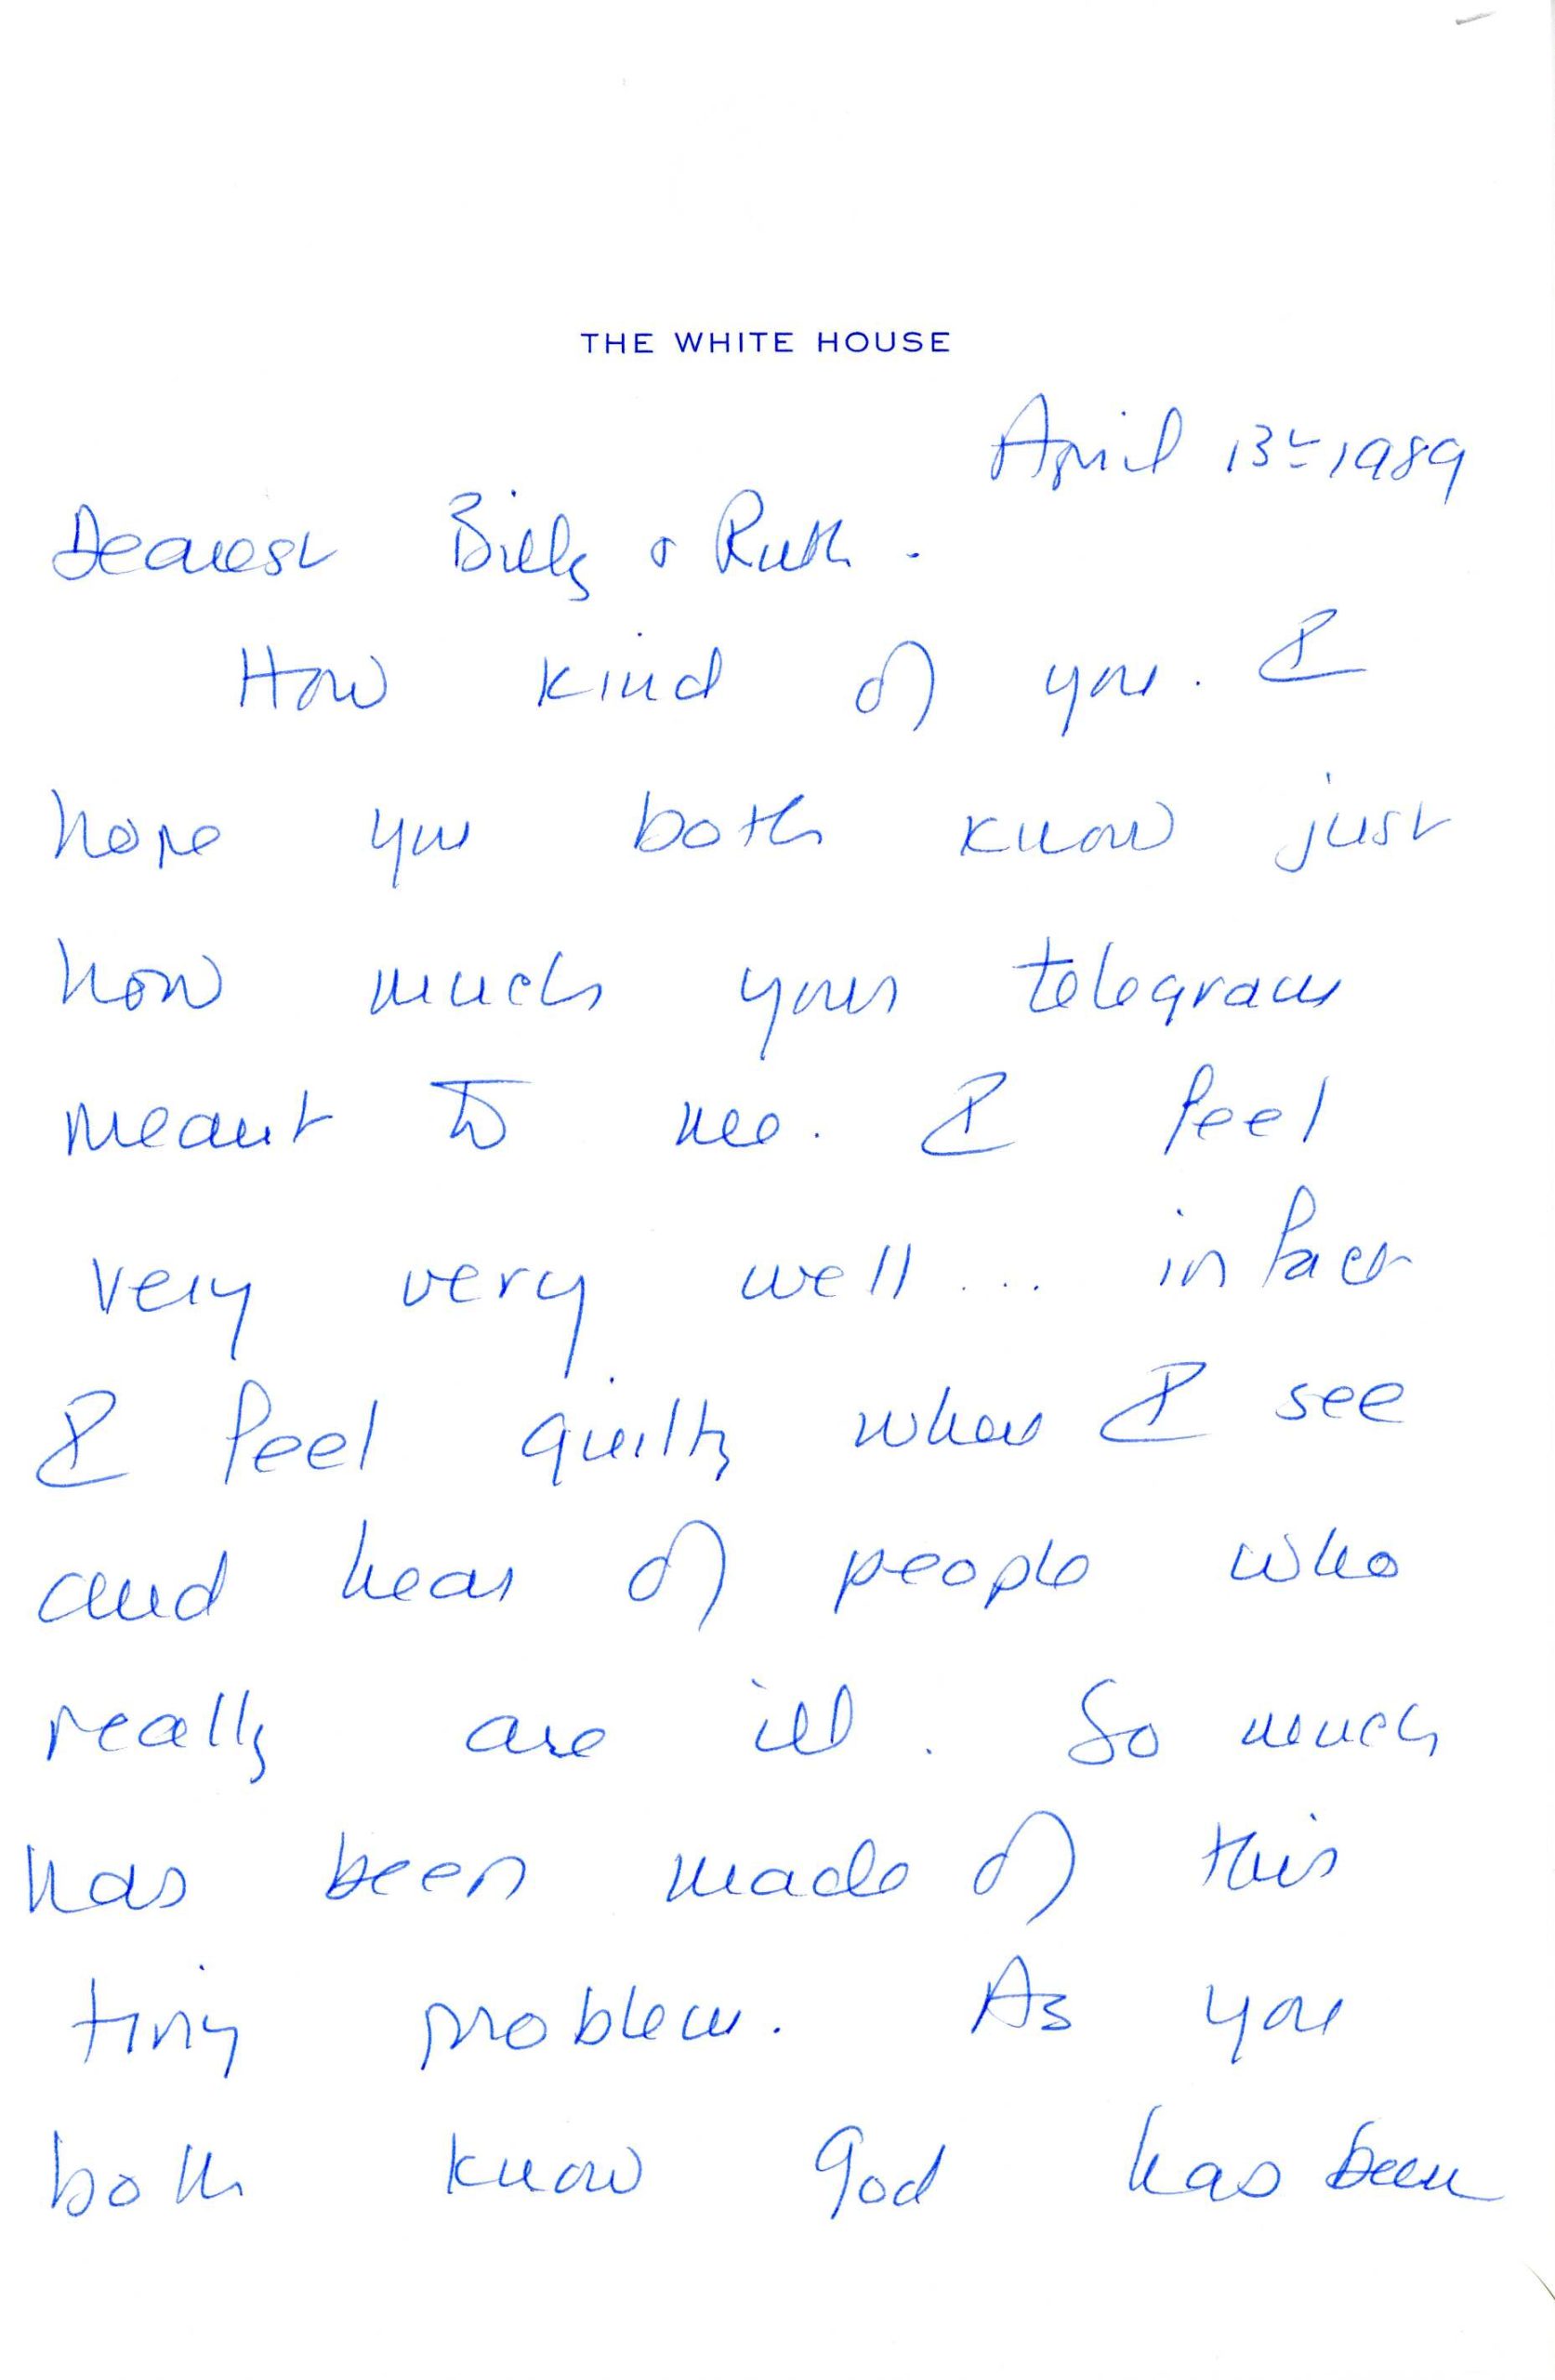 THE WHITE HOUSE
April 13th 1989
Dearest Billy & Ruth -
How kind of you. I
hope you both know just
how much your telegram
meant to me. I feel
very very well ... in fact
I feel guilty when I see
and hear of people who
really are ill. So much
has been made of this
tiny problem. As you
both know God has been